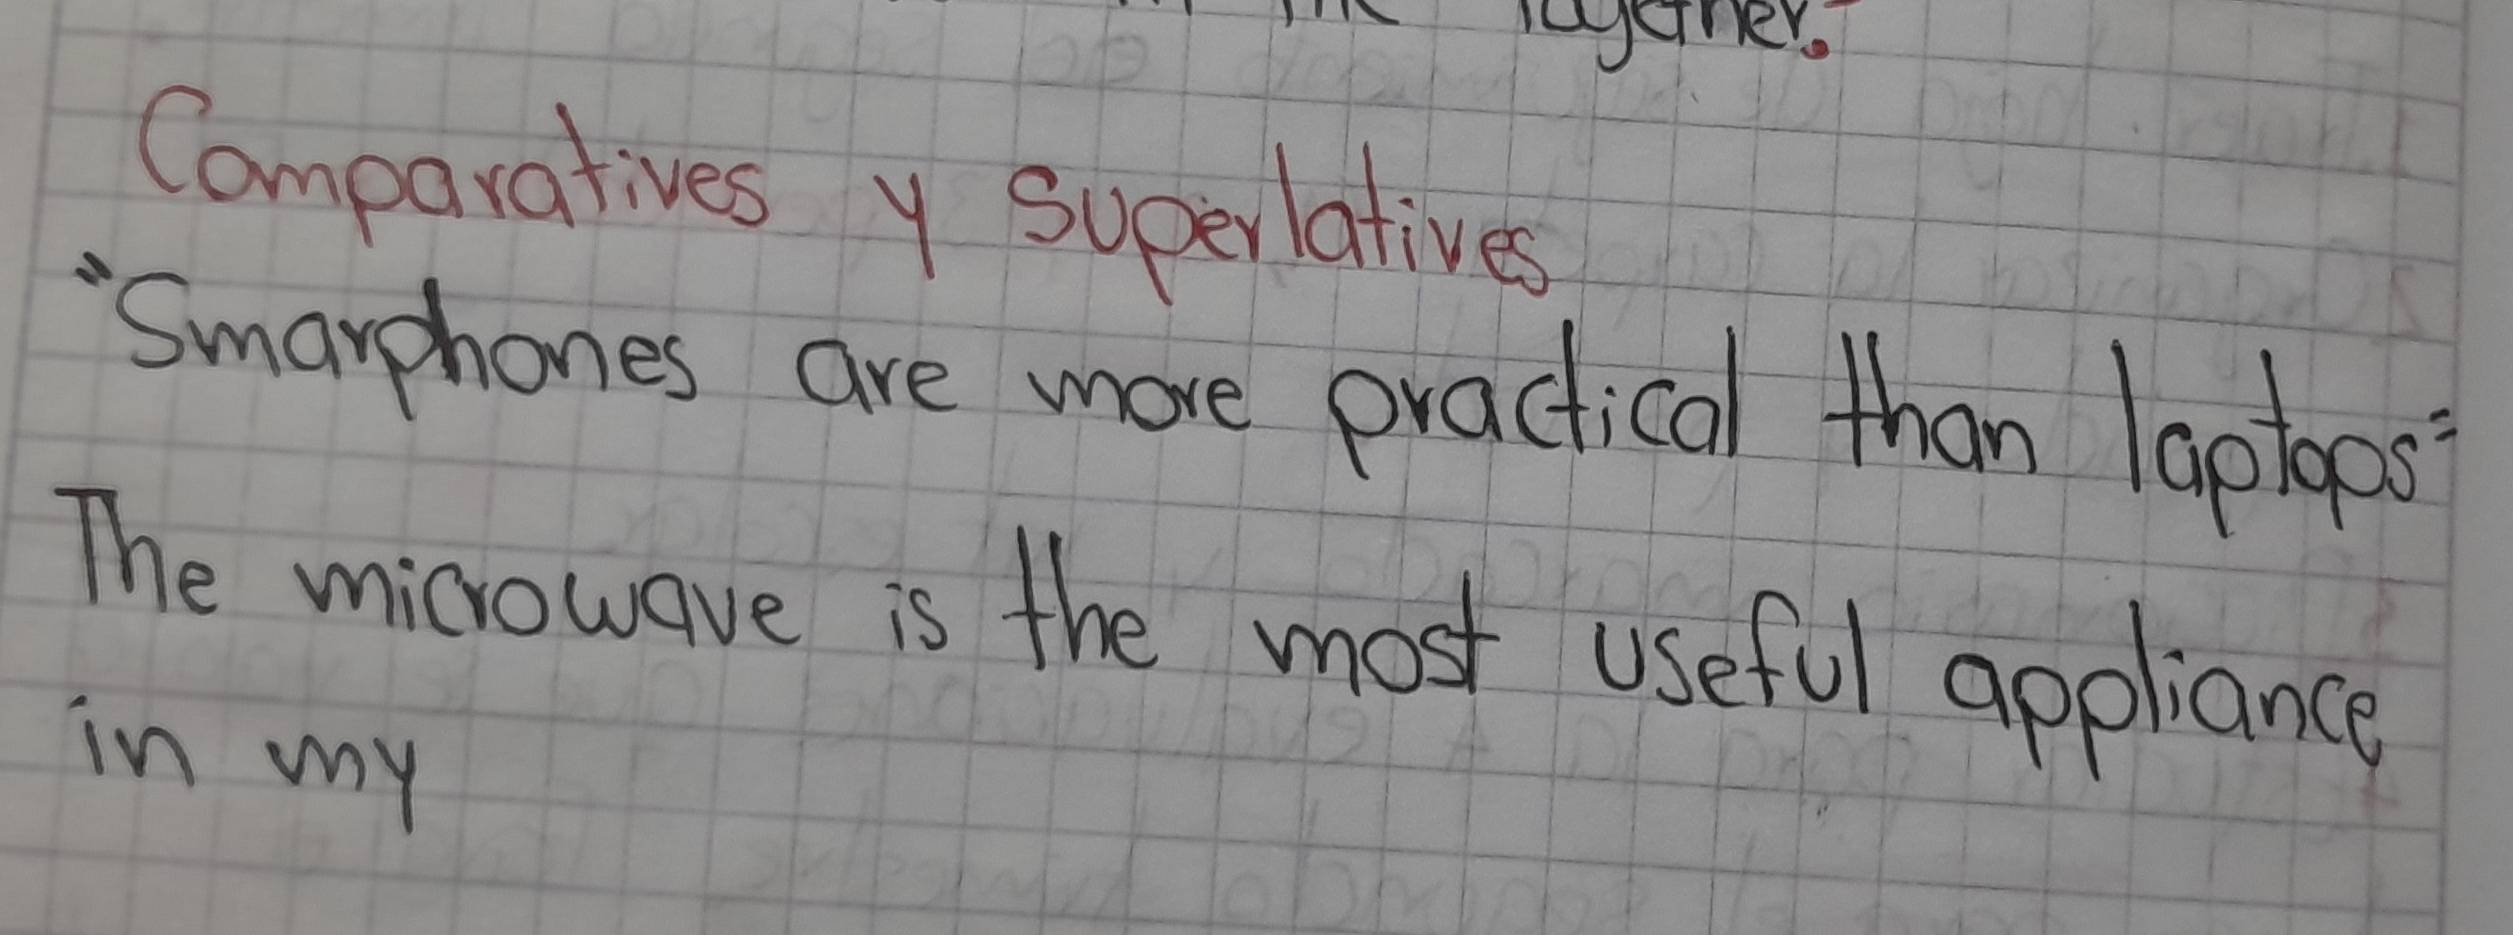 together.
Comparatives y superlatives
"Smarphones are more practical than laptops"
The microwave is the most useful appliance
in my